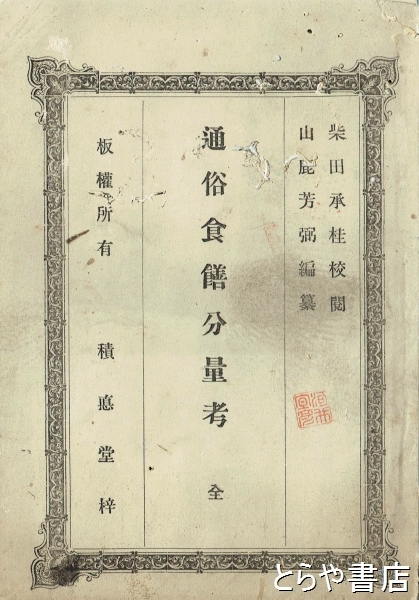 柴田承桂校閲
山鹿芳弼編纂
通俗食饍分量考 全
板權所有 積惪堂梓
とらや書店